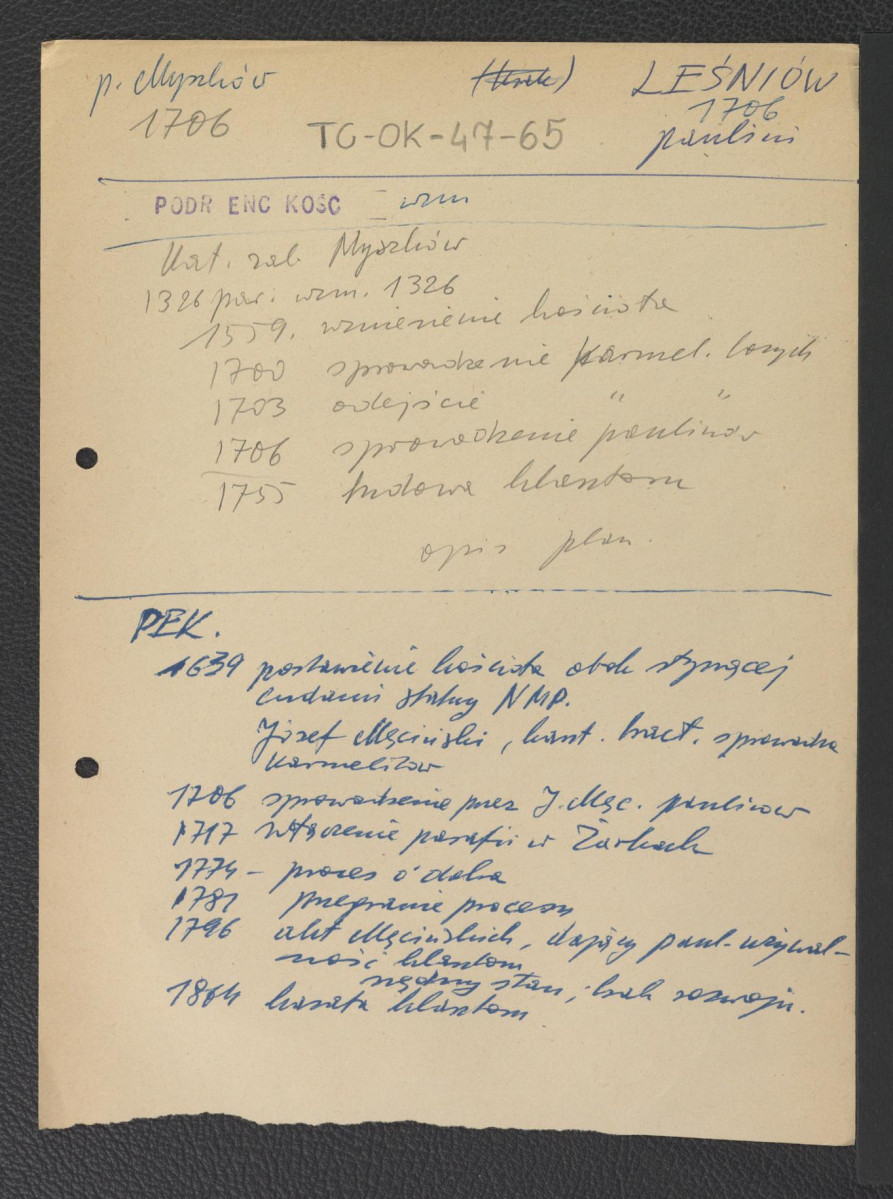 p. Myszków
LEŚNIÓW
1706
1706
TC-OK-47-65
paulini
PODR ENC KOŚC — wzm
Kat. zab. Myszków
1326 par. wzm. 1326
1559. wzniesienie kościoła
1700 sprowadzenie Karmel. bosych
1703 odejście " "
1706 sprowadzenie paulinów
1755 budowa klasztoru
opis plan.
PEK.
1639 postawienie kościoła obok słynącej
cudami statuy NMP.
Józef Męciński, kaszt. , sprowadza
karmelitów
1706 sprowadzenie przez J. Męc. paulinów
1717 włączenie parafii w Żarkach
1774 – proces o dobra
1781 przegranie procesu
1796 akt Męcińskich, dający paul. używal-
ność klasztoru
nędzny stan, brak rozwoju.
1864 kasata klasztoru